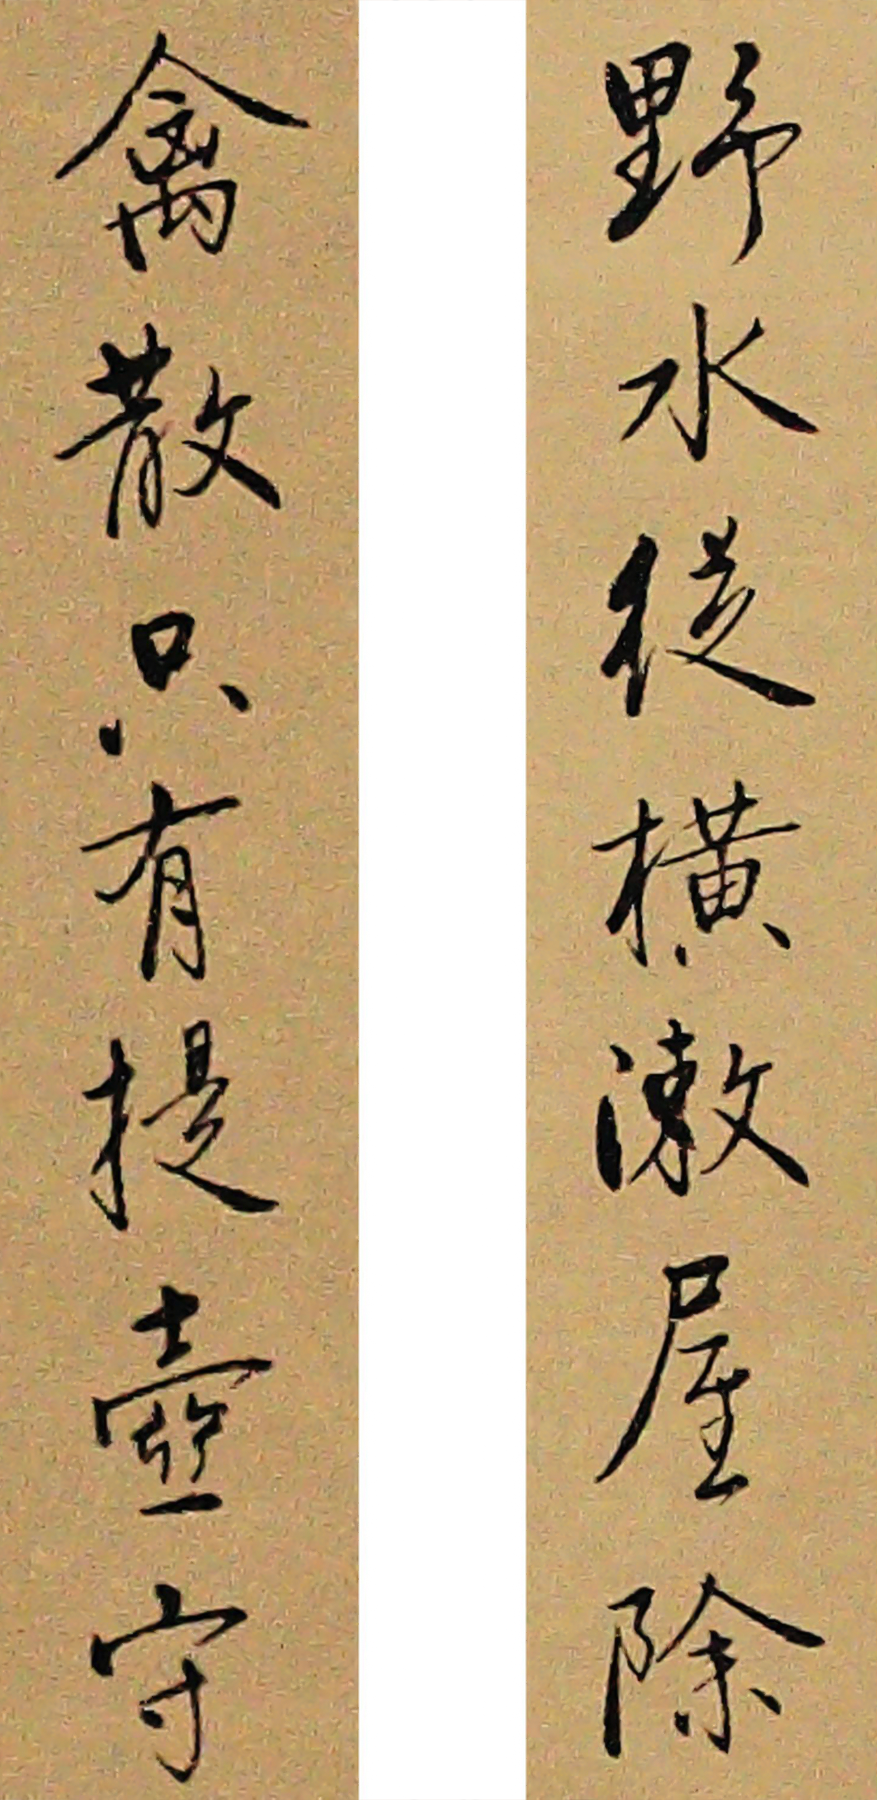 野水從橫漱屋除
禽散只有提壺守